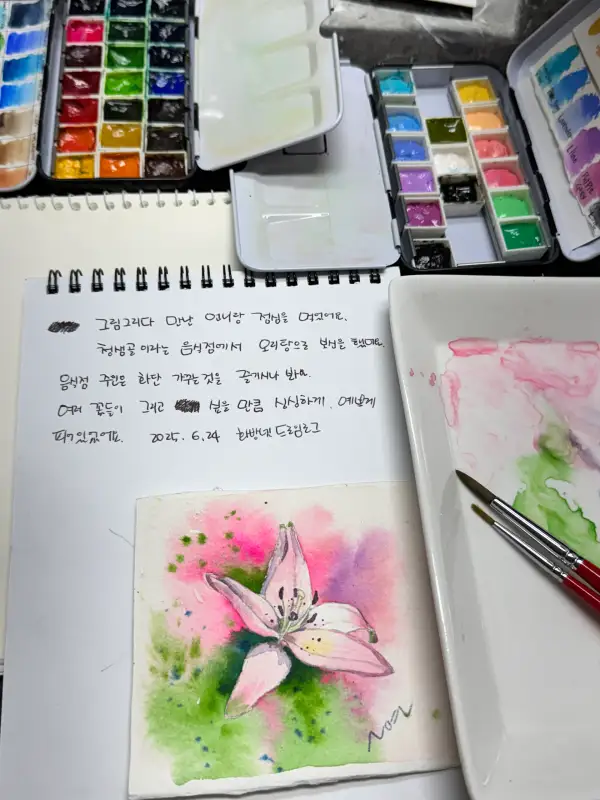 그림그리다 만난 언니랑 점심을 먹었어요.
청샘골이라는 음식점에서 오리탕으로 보신을 했어요.
음식점 주인은 화단 가꾸는것을 즐기시나 봐요.
여러 꽃들이 그리고 싶을 만큼 싱싱하게. 예쁘게
피어있었어요. 2025. 6. 24 한방넷드림로그